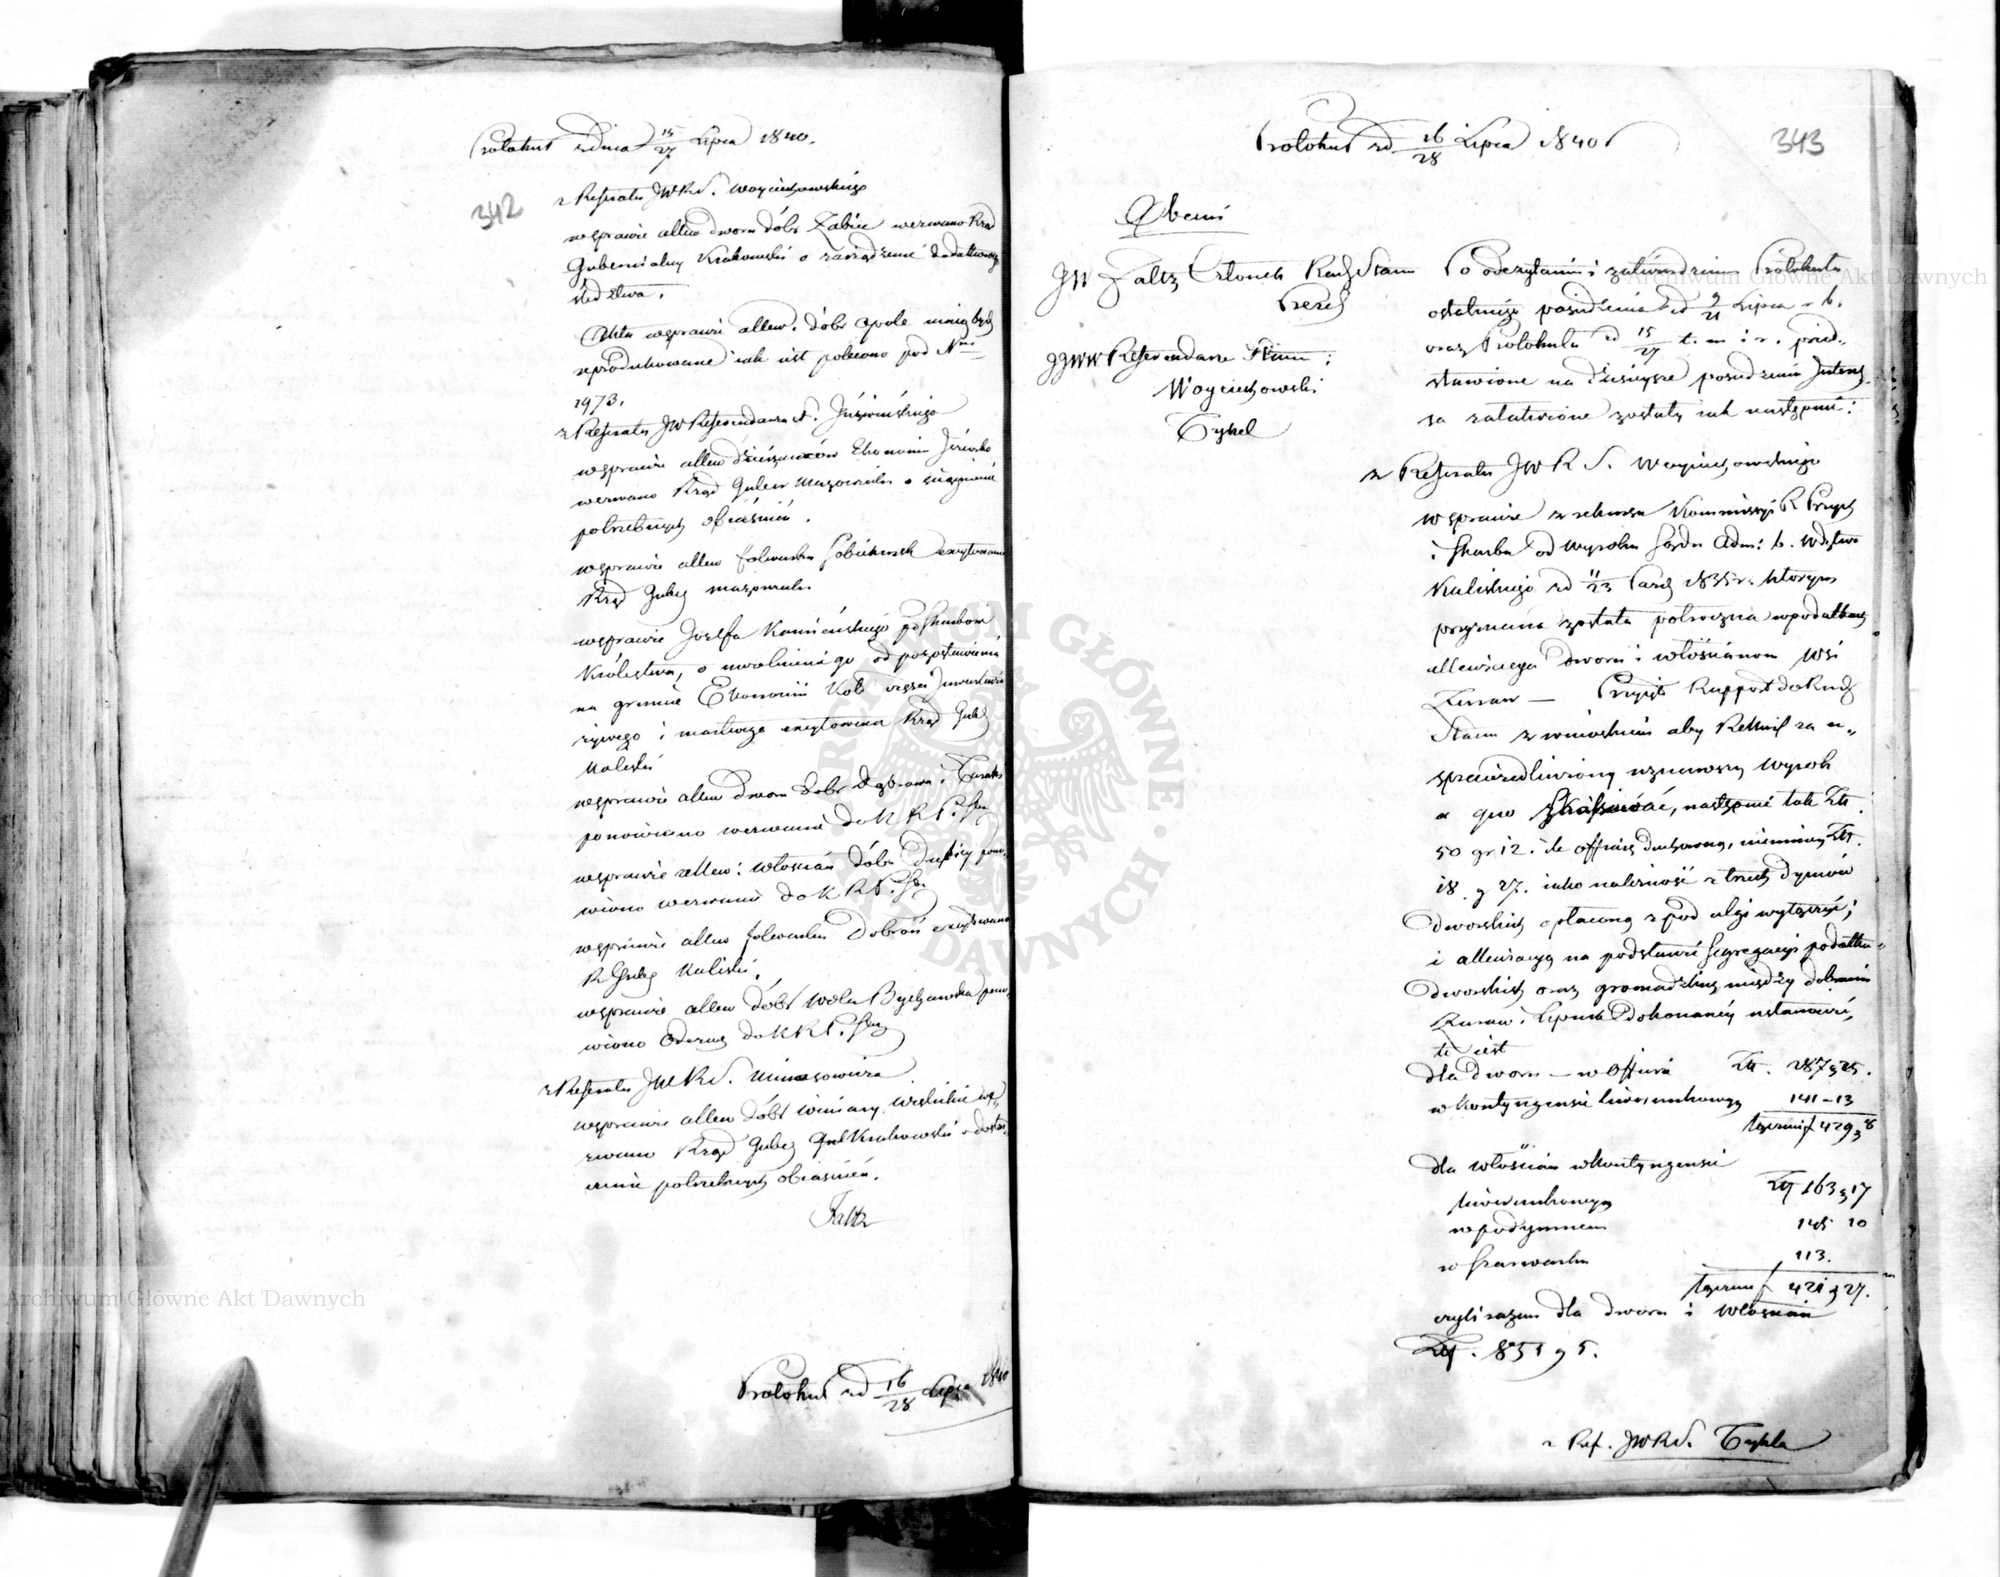 Protokuł z dnia 15/27 Lipca 1840.
342
z Referatu JWRS. Woyciechowskiego
w sprawie allew dworu dóbr Żabiec wezwano Rząd
Gubernialny Krakowski o zarządzenie dodatkowego
śledztwa.
Akta w sprawie allew. dóbr Opole mają być
reprodukowane jak jest polecono pod Nrm
1973.
z Referatu JWReferendarza S.
w sprawie allew dzierżawców Ekonomii
wezwano Rząd Guber Mazowiecki o
potrzebnych objaśnień.
w sprawie allew folwarku excytowano
Rząd Guber mazowiecki
w sprawie Jozefa Kamińskiego
Królestwa, o uwolnienie go od pozostawienia
na gruncie Ekonomii Koło części Inwentarza
żywego i martwego excytowano Rząd Gub
Kaliski
w sprawie allew Dworu Dobr Dąbrowa i
ponowiono wezwanie do KRPiSk
w sprawie allew: włościan dóbr pono-
wiono wezwanie do KRPiSk
w sprawie allew folwarku Dobroń excytowano
R Guber Kaliski.
w sprawie allew dóbr Wola Bychawska pono-
wiono Odezwę do KRPiSk
z Referatu JWRS. Minasowicza
w sprawie allew dóbr Winiary wielkie we-
zwano Rząd Guber Krakowski o dostar-
czenie potrzebnych objaśnień.
Faltz
Protokuł z d 16/28 Lipca 1840
Protokuł z d 16/28 Lipca 1840 r
343
Obecni
JW Faltz Członek Rady Stanu
Prezd
JJWW Referendarze Stanu:
Woyciechowski
Tykel
Po odczytaniu i zatwierdzeniu Protokułu
ostatniego posiedzenia z d 9/21 Lipca r. b.
oraz Protokułu z d 15/27 t. m. i r. przed-
stawione na dzisiejsze posiedzenie Interes-
sa załatwione zostały jak następuie:
z Referatu JWRS. Woyciechowskiego
w sprawie z rekursu Kommissyi R Przych
i Skarbu od Wyroku Sądu Adm: b. Wdztwa
Kaliskiego z d 11/23 Paźd 1835 r. którym
przyznana została policzna w podatkach
allewiacya dworu i włościanom Wsi
Żuraw — Przyjęto Rapport do Rady
Stanu z wnioskiem aby Rekurs za u-
sprawiedliwiony uznawszy Wyrok
a quo, następnie
50 gr 12. ile offiarę duchowną, niemniey Złt.
18. g 27. iako należność z trzech dymów
dworskich opłaconą z pod ulgi wyłączyć;
i allewiacyą na podstawie segregacyi podatku
dworskich oraz gromadzkich między dobrami
Żuraw i Lipnik dokonaney ustanowić,
to iest
dla Dworu — w Offierze Złt. 287 g 25.
w Kontyngensie liwerunkowym 141 – 13
łącznie f 429 g 8
dla włościan w Kontyngensie
liwerunkowym Złt 163 g 17
w podymnem 145 10
w szarwarku 113.
łącznie f 421 g 27.
czyli razem dla dworu i Włościan
Złt. 851 g 5.
z Ref. JWRS. Tykla
Archiwum Główne Akt Dawnych
Archiwum Główne Akt Dawnych
ARCHIWUM GŁÓWNE AKT DAWNYCH